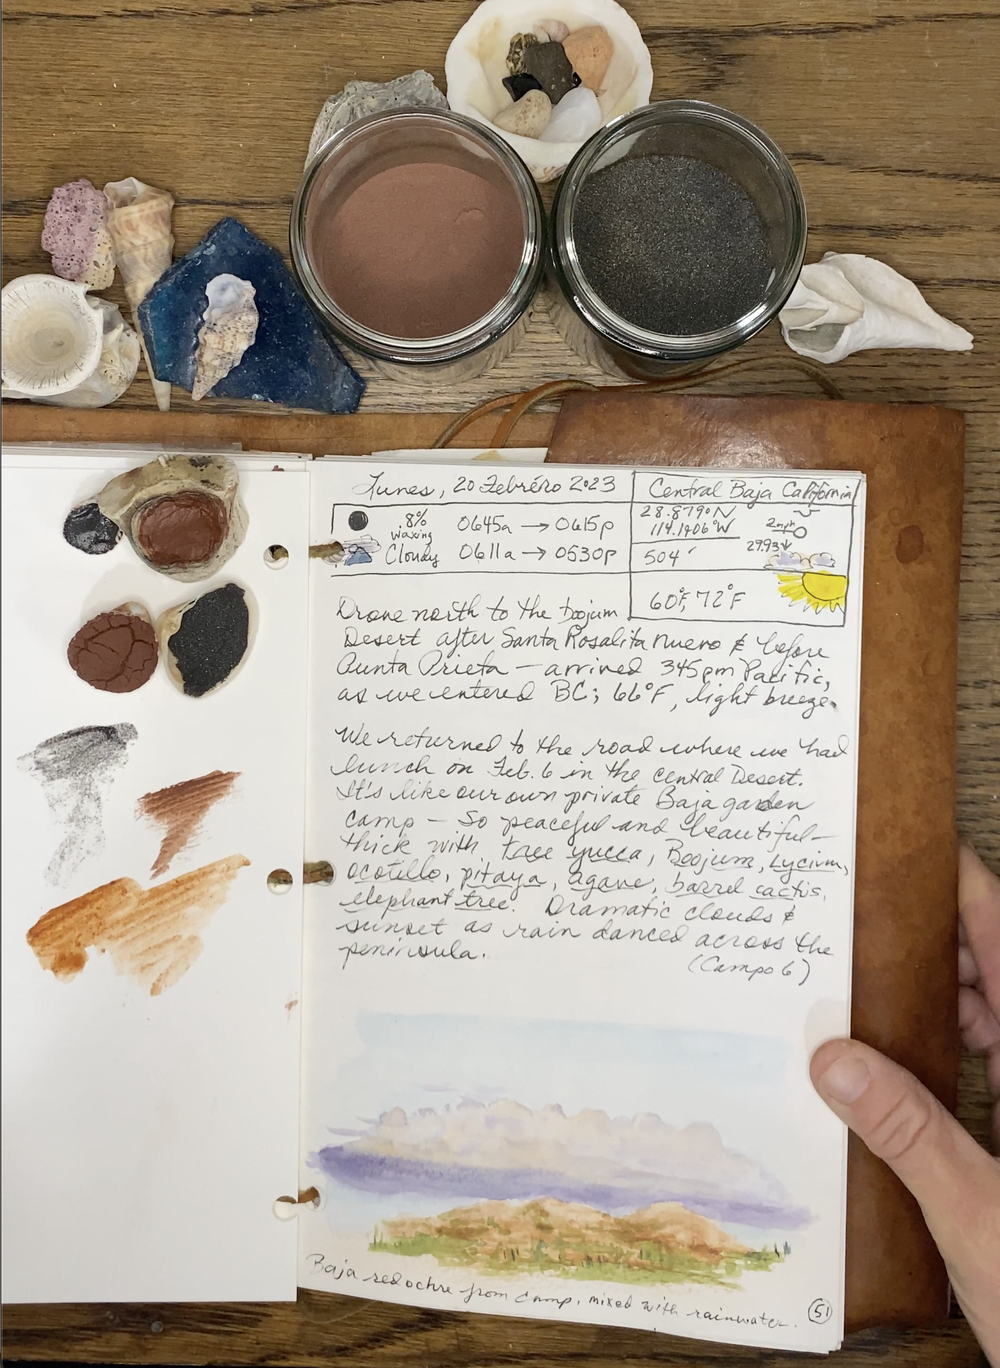 Lunes, 20 Febréro 2023
Central Baja California
8% waxing 0645a → 0615p
Cloudy 0611a → 0530p
28.879°N
114.1406°W
2mph
29.93↓
504'
60°F, 72°F
Drove north to the boojum
Desert after Santa Rosalita nuevo & before
Punta Prieta — arrived 345pm Pacific,
as we entered BC; 66°F, light breeze.
We returned to the road where we had
lunch on Feb. 6 in the central Desert.
It's like our own private Baja garden
camp — So peaceful and beautiful—
thick with tree yucca, Boojum, Lycium,
ocotillo, pitaya, agave, barrel cactus,
elephant tree. Dramatic clouds &
sunset as rain danced across the
peninsula.
(Campo 6)
Baja red ochre from camp, mixed with rainwater.
51